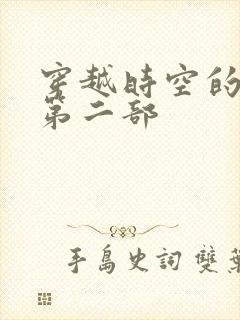 穿越時空的
第二部
手島史詞 雙葉